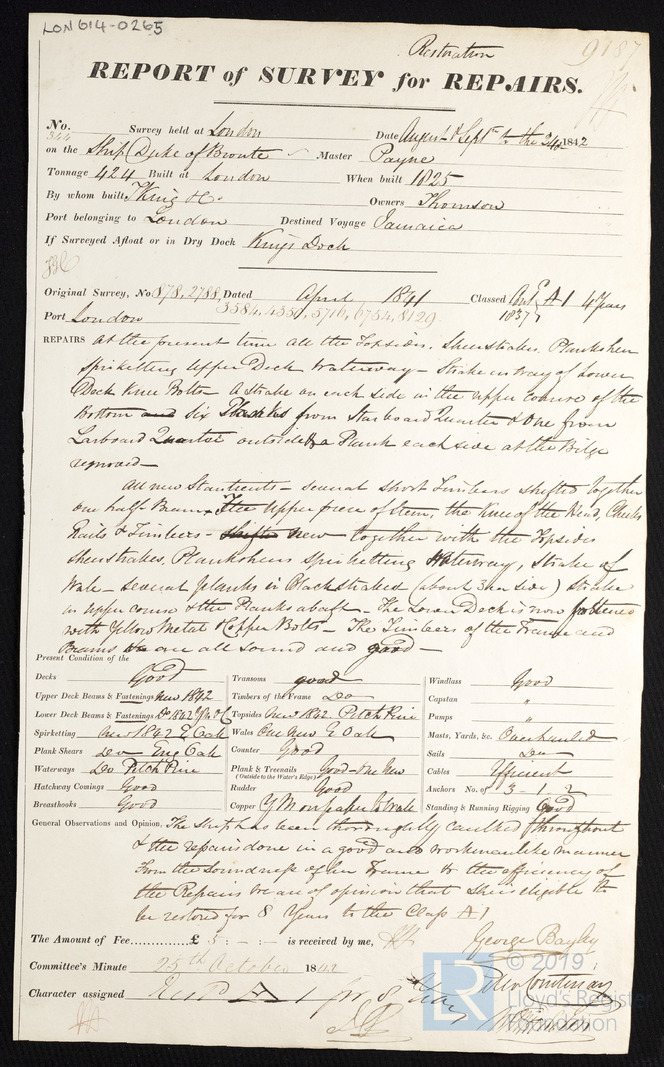 LON614-0265
Restoration
9187
REPORT of SURVEY for REPAIRS.
No. 344 Survey held at London Date August & Septr to the 24 1842
on the Ship Duke of Bronte Master Payne
Tonnage 424 Built at London When built 1825
By whom built T King & Co. Owners Thomson
Port belonging to London Destined Voyage Jamaica
If Surveyed Afloat or in Dry Dock Kings Dock
Original Survey, No 878, 2788, Dated April 1841 Classed A 1 4 Years
Port London 3584, 4350, 5716, 6754, 8129. 1837
REPAIRS At the present time all the Topsides, Sheerstrakes, Planksheer
Spirketting Upper Deck Waterway - Strake in way of Lower
Deck Knee Bolts - A Strake on each side in the upper course of the
Bottom and six Planks from Starboard Quarter & One from
Larboard Quarter outside & a Plank each side at the Bilge
removed -
All new Stantients - several short Timbers shifted together
one half Beam - Upper piece of Stem, the Knee of the Head, Cheeks
Rails & Timbers - Shifted New together with the Topsides
Sheerstrakes, Plankshears Spirketting Waterway, Strake of
Wale - several planks in Blackstrakes (about 3 on a side) Strake
in upper course & the Planks abaft - The Lower Deck is now fastened
with Yellow Metal & Copper Bolts - The Timbers of the Frame and
Beams are all sound and good -
Present Condition of the
Decks Good Transoms good Windlass Good
Upper Deck Beams & Fastenings New 1842 Timbers of the Frame Do Capstan "
Lower Deck Beams & Fastenings Do 1842 Topsides New 1842 Pitch Pine Pumps "
Spirketting New 1842 E Oak Wales One New E Oak Masts, Yards, &c. Overhauled
Plank Shears Do Eng Oak Counter Good Sails Do
Waterways Do Pitch Pine Plank & Treenails Good - One New Cables Efficient
(Outside to the Water's Edge)
Hatchway Comings Good Rudder Good Anchors No. of 3 - 1 - 2
Breasthooks Good Copper Y M on paper to Wale Standing & Running Rigging Good
General Observations and Opinion, The Ship has been thoroughly caulked throughout
& the repairs done in a good and workmanlike manner
From the soundness of her Frame & the efficiency of
the Repairs we are of opinion that She is eligible to
be restored for 8 Years to the Class A 1
The Amount of Fee.............£ 5 : - : - is received by me,
George Bayley
Committee's Minute 25th October 1842
Character assigned Rest'd A 1 for 8 Years
LR
© 2019
Lloyd's Register
Foundation